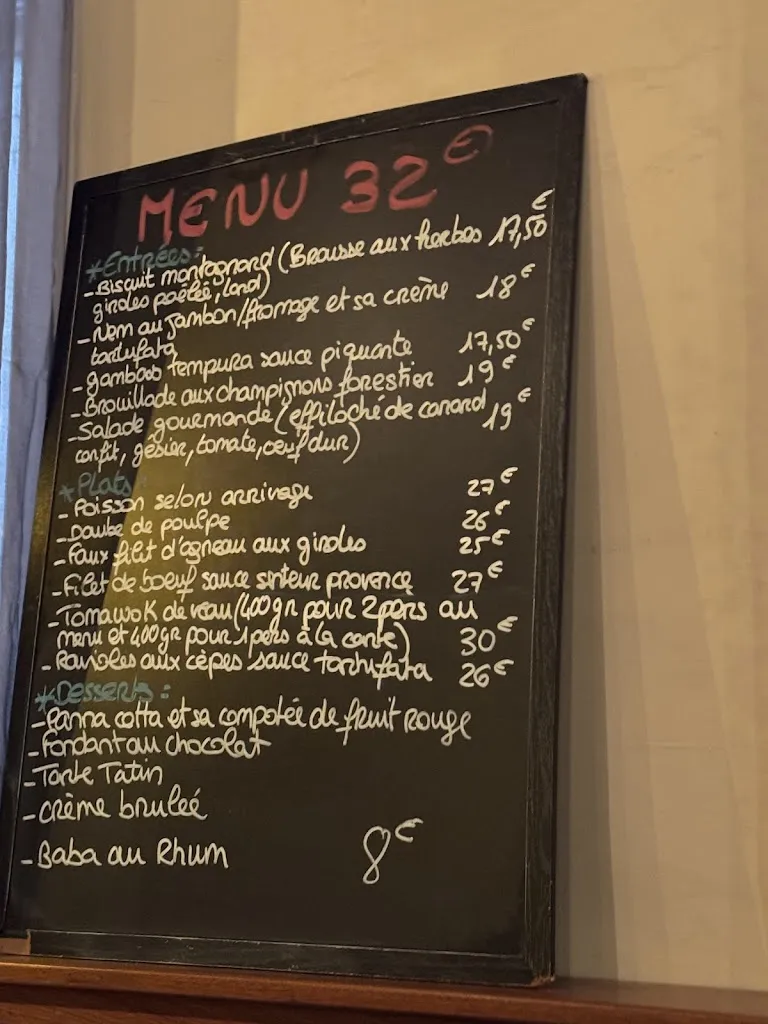 MENU 32€
*Entrées:
-Biscuit montagnard (Brousse aux herbes 17,50€
giroles poêlée, lard)
-Nem au jambon/fromage et sa crème 18€
tartufata
-gambas tempura sauce piquante 17,50€
-Brouillade aux champignons forestier 19€
-Salade gourmande (effiloché de canard 19€
confit, gésier, tomate, oeuf dur)
*Plats
-Poisson selon arrivage 27€
-Daube de poulpe 26€
-Faux filet d'agneau aux giroles 25€
-Filet de boeuf sauce provence 27€
-Tomawok de veau (400gr pour 2pers au
menu et 400gr pour 1pers à la carte) 30€
-Ravioles aux cèpes sauce tartufata 26€
*Desserts:
-Panna cotta et sa compotée de fruit rouge
-Fondant au chocolat
-Tarte Tatin
-crème bruleé
-Baba au Rhum 8€